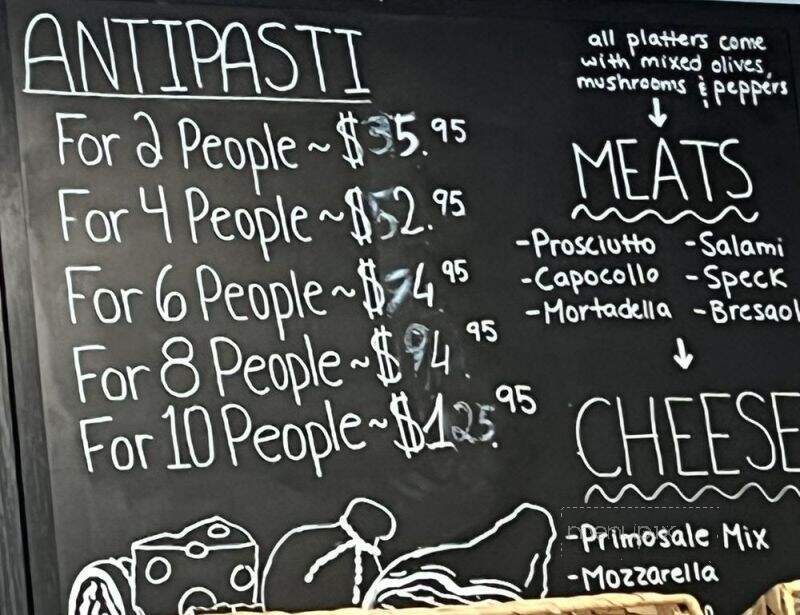 ANTIPASTI
For 2 People ~ $35.95
For 4 People ~ $52.95
For 6 People ~ $74.95
For 8 People ~ $94.95
For 10 People ~ $125.95
all platters come
with mixed olives,
mushrooms & peppers
MEATS
-Prosciutto -Salami
-Capocollo -Speck
-Mortadella -Bresaol
CHEESE
-Primosale Mix
-Mozzarella